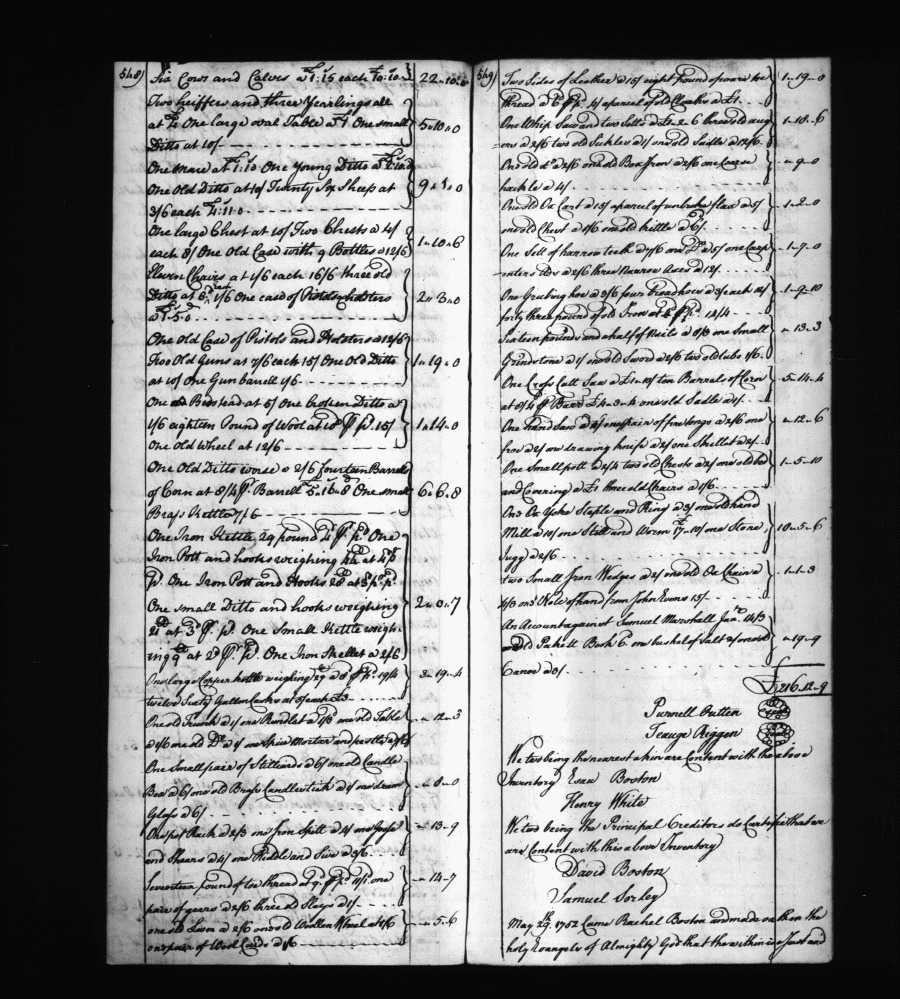 548)
Six Cows and Calves a £1:15 each £10:10 22..10..0
Two heiffers and three Yearlings all
at £4 One large oval Table a £1 One small 5..10..0
Ditto at 10/
One mare at £1:10 One Young Ditto a
One Old Ditto at 10/ Twenty Six Sheep at 9..1..0
3/6 each £4:11:0
One large Chest at 10/ Two Chests a 4/
each 8/ One Old Case with 9 Bottles a 12/6 1..10..6
Eleven Chairs at 1/6 each 16/6 three old
Ditto at 6d each 1/6 One case of Pistols & holsters 2..3..0
a £1..5..0
One Old Case of Pistols and Holsters a 12/6
Two Old Guns at 7/6 each 15/ One Old Ditto 1..19..0
at 10/ One Gun barrell 1/6
One Bedstead at 5/ One broken Ditto a
1/6 eighteen Pound of Wool at 10d p pd. 15/ 1..14..0
One Old Wheel at 12/6
One Old Ditto worse a 2/6 fourteen Barrells
of Corn at 8/4 p. Barrell £5..16..8 One small 6..6..8
Brass Kettle 7/6
One Iron Kettle 29 pound 4d p. pd. One
Iron Pott and hooks weighing 44 at 4d p
pd. One Iron Pott and Hooks 28 at 3d p. pd.
One small Ditto and hooks weighing 2..0..7
21 at 3d p. pd. One Small Kettle weigh-
ing 9 at 2d p. pd. One Iron Skellet a 2/6
One large Copper kettle weighing 29 a 8d p pd. 19/4 3..19..4
twelve Sixty Gallon Casks at 5/ each £3
One old Trunk a 1/ one Rundlet a 1/6 one old Table ..12..3
a 1/6 one old Do. a 1/ one Spice Morter and pestle a
One Small pair of Stilliards a 6/ one old Candle
Box a 6/ one old Brass Candlestick a 1/ one dram ..8..0
Glass a 6/
One pot Rack a 2/3 one Iron Spitt a 4/ one Goose ..13..9
and Shears a 4/ one Riddle and Sive a 3/6
Seventeen pound of toe thread at 9d p pd. 11/1 one ..14..7
pair of gears a 2/6 three old Slays a 1/
one old Loom a 2/6 one old Woollen Wheel a 1/6 ..5..6
one pair of Wool Cards a 1/6
549)
Two Sides of Leather a 15/ eight pound of coarse toe 1..19..0
thread a 6d p pd. 4/ a parcel of old Cloaths a £1
One Whip Saw and two Sett's a £1..2..6 three old aug 1..18..6
ers a 2/6 two old Sickles a 1/ one old Sadle a 12/6
One old do. a 2/6 one old Box Iron a 2/6 one Coarse ..9..0
hackle a 4/
One old Ox Cart a 15/ a parcel of unbroke flax a 5/ 1..2..0
one old Chest a 1/6 one old kittle a 6d
One Sett of harrow teeth a 7/6 one Do. a 5/ one Carp 1..9..0
enters Adz a 2/6 three Narrow Axes a 12/
One Grubing hoe a 3/6 four Broad hoes a 3/ each 12/ 1..9..10
forty three pound of old Iron at 4d p pd. 14/4
Sixteen pounds and a half of Nails a 8/3 one Small ..13..3
Grindstone a 1/ one old Sword a 2/6 two old tubs 1/6
One Cross Cutt Saw a £1..10/ ten Barrels of Corn 5..14..4
at 8/4 p Barr £4..3..4 one old Sadle a 1/
One hand Saw a 2/ one pair of fire tongs a 2/6 one ..12..6
froe a 2/ one drawing knife a 2/ one Skellet a 2/
One Small pott a 2/4 two old Chests a 2/ one old bed 1..5..10
and Covering a £1 three old Chairs a 1/6
One Ox Yoke Staple and Ring a 3/ one old hand
Mill a 10/ one Still and Worm £7..10/ one Stone 10..5..6
Jugg a 2/6
two Small Iron Wedges a 2/ one old Ox Chain a 1..1..3
4/3 one Note of hand from John Evans 15/
An Account against Samuel Marshall Junr. 14/3
one old Pockett Book 6d one bushel of Salt a 2/ one old ..19..9
Canoe a 3/
£216..12..9
Purnell Outten
Teauge Riggen
We two being the nearest a kin are Content with the above
Inventory Esau Boston
Henry White
We two being the Principal Creditors do Certifie that we
are Content with this above Inventory
David Boston
Samuel Sorley
May 29th. 1752 Came Rachel Boston and made oath on the
holy Evangels of Almighty God that the within is a Just and